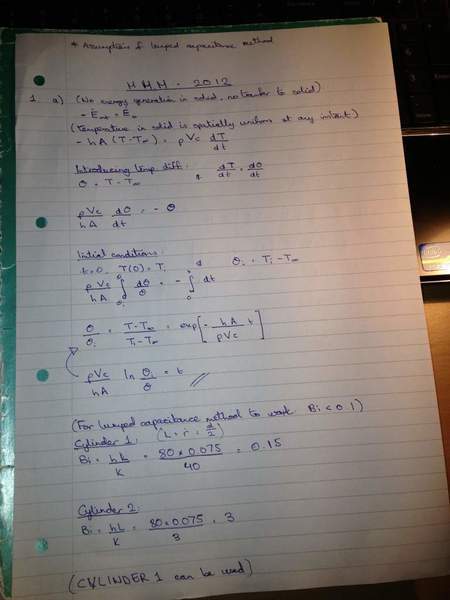 * Assumptions of lumped capacitance method
HMM - 2012
1. a) (No energy generation in solid, no transfer to solid)
- Ėout = Ėst
(Temperature in solid is spatially uniform at any instant)
- hA (T - T∞) = ρVc dT/dt
Introducing temp diff:
θ = T - T∞ & dT/dt = dθ/dt
ρVc/hA dθ/dt = - θ
Initial conditions:
t=0 T(0) = Ti & θi = Ti - T∞
ρVc/hA ∫θi^θ dθ/θ = - ∫0^t dt
θ/θi = T-T∞/Ti-T∞ = exp[- hA/ρVc t]
ρVc/hA ln θi/θ = t //
(For lumped capacitance method to work Bi < 0.1)
Cylinder 1: (L = r = d/2)
Bi = hL/K = 80 x 0.075/40 = 0.15
Cylinder 2:
Bi = hL/K = 80 x 0.075/3 = 3
(CYLINDER 1 can be used)